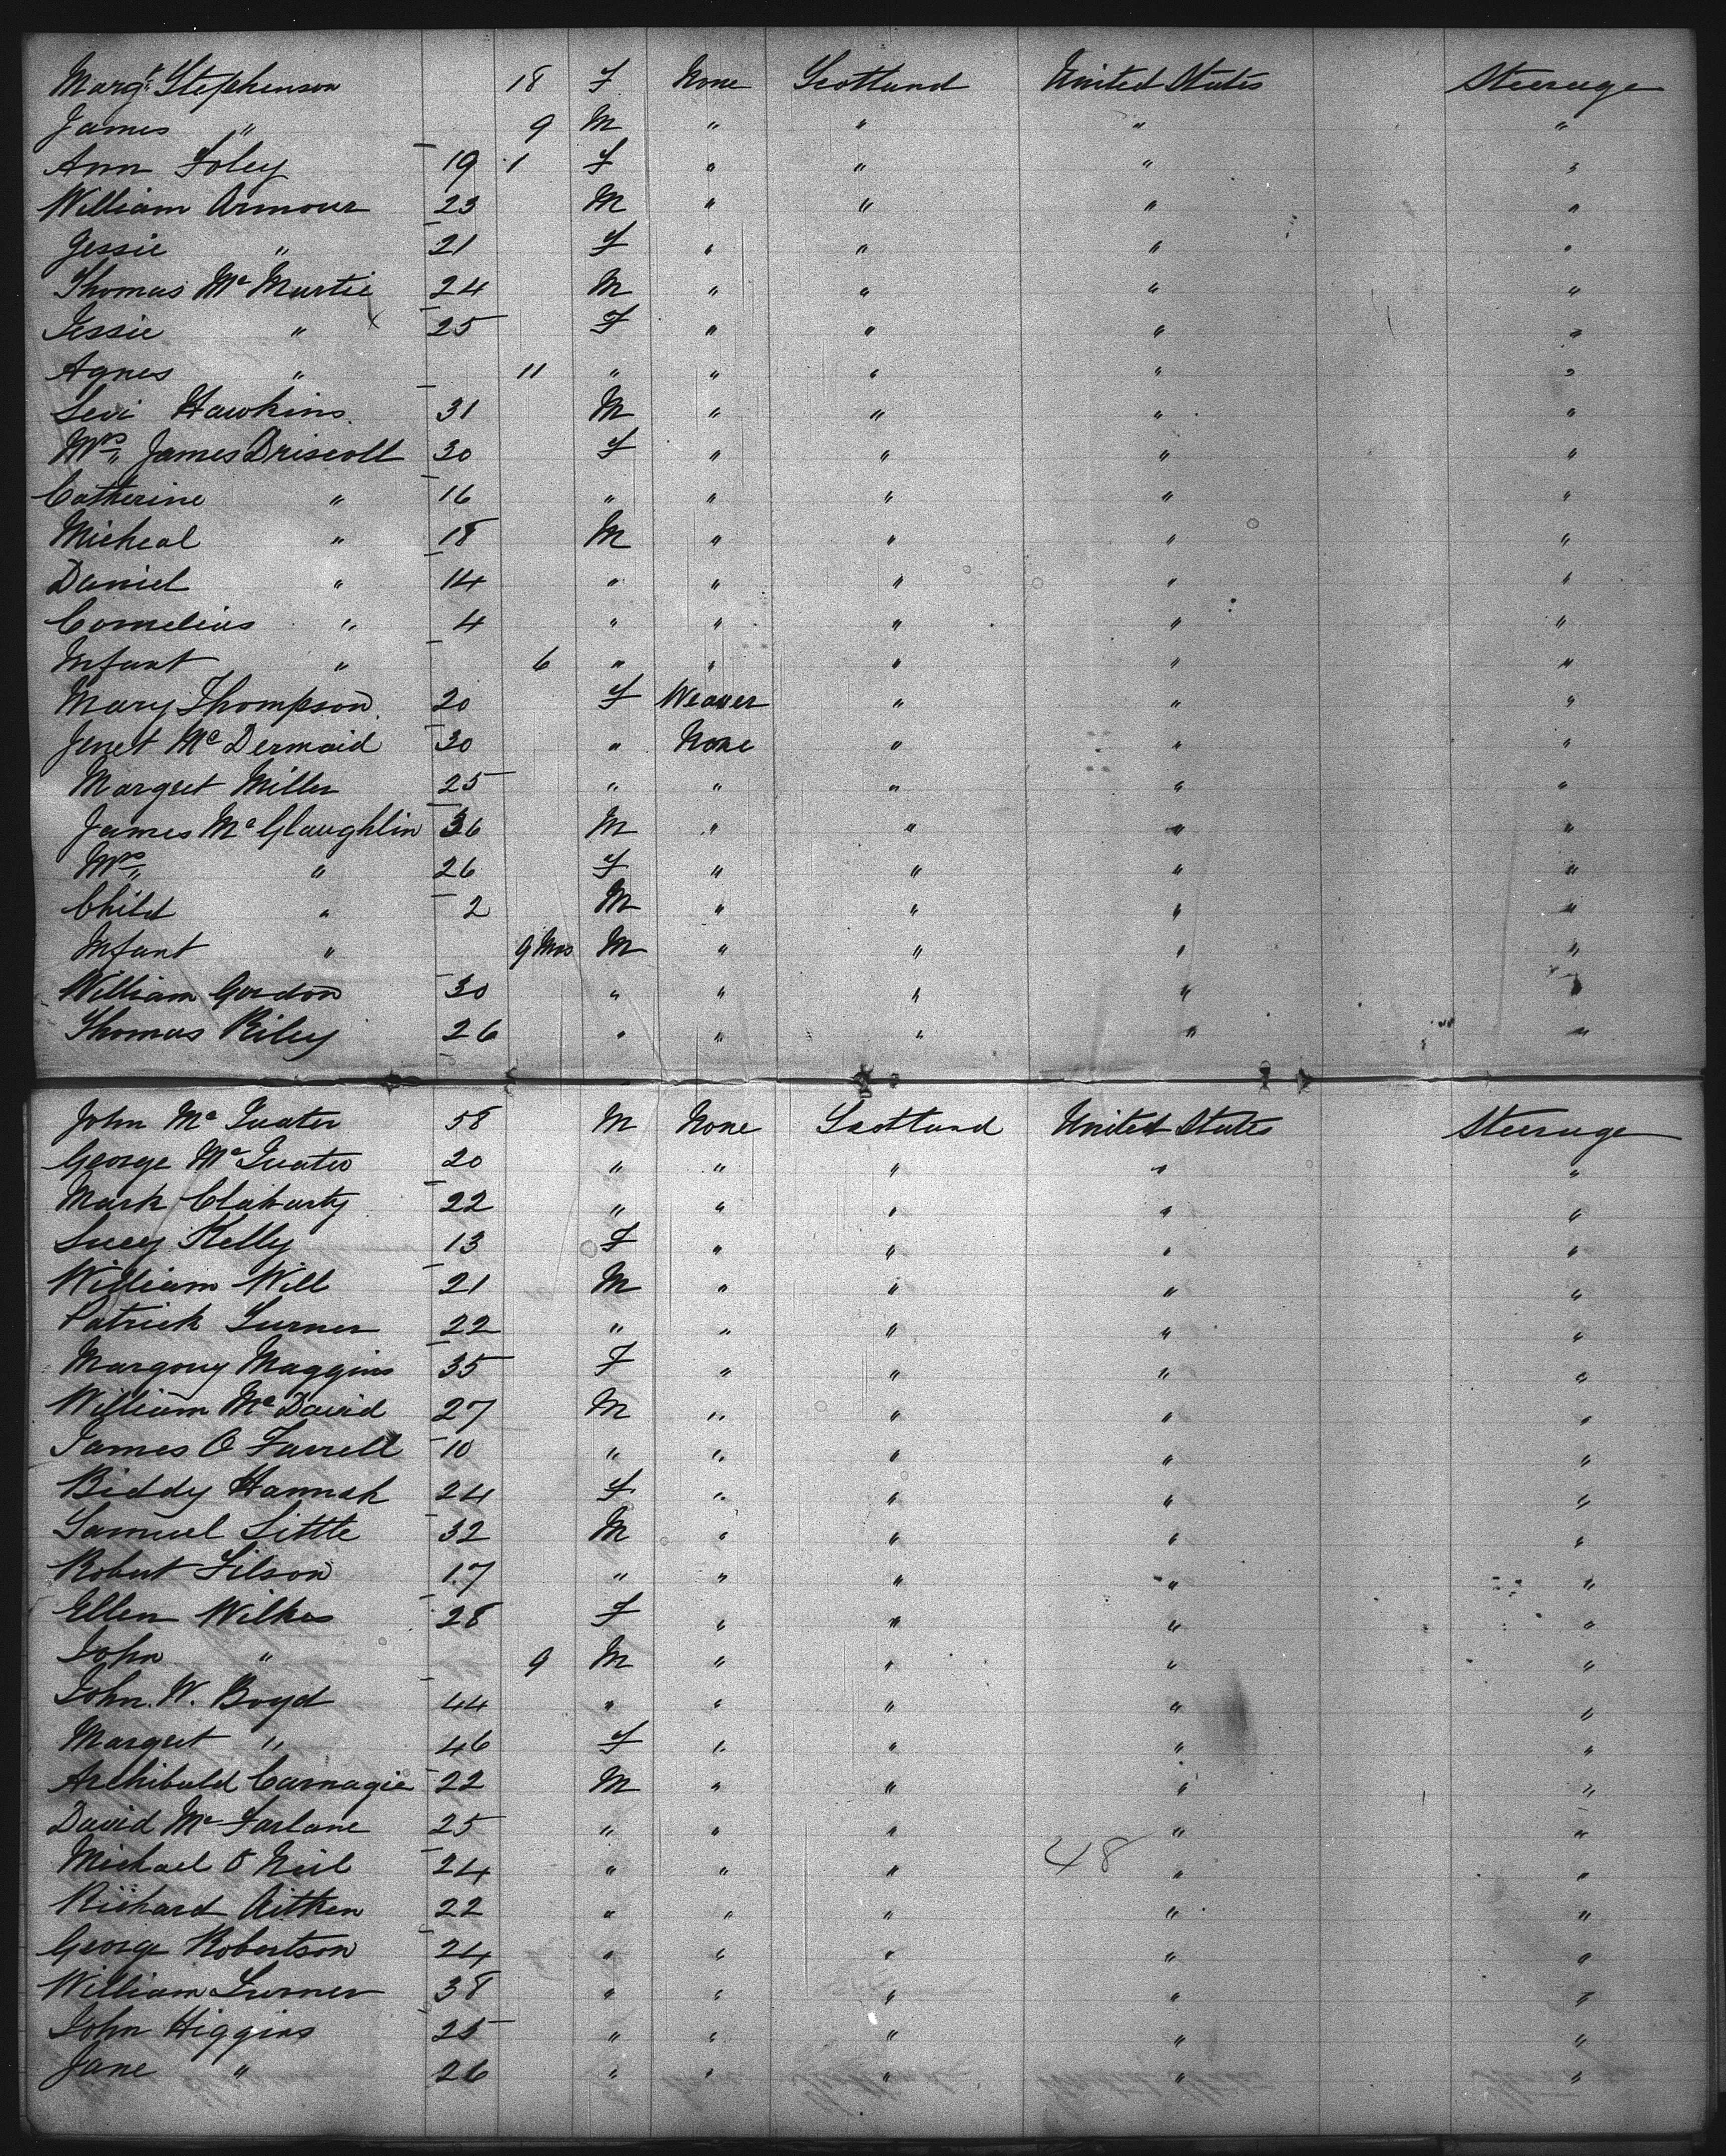 Margt Stephenson 18 F None Scotland United States Steerage
James " 9 M " " " "
Ann Foley 19 1 F " " " "
William Armour 23 M " " " "
Jessie " 21 F " " " "
Thomas Mc Murtie 24 M " " " "
Jessie " 25 F " " " "
Agnes " 11 " " " " "
Levi Hawkins 31 M " " " "
Mrs James Driscoll 30 F " " " "
Catherine " 16 " " " " "
Micheal " 18 M " " " "
Daniel " 14 " " " " "
Cornelius " 4 " " " " "
Infant " 6 " " " " "
Mary Thompson 20 F Weaver " " "
Jenet Mc Dermaid 30 " None " " "
Margret Miller 25 " " " " "
James Mc Glaughlin 36 M " " " "
Mrs " 26 F " " " "
Child " 2 M " " " "
Infant " 9 Mos M " " " "
William Gordon 30 " " " " "
Thomas Riley 26 " " " " "
John Mc 58 M None Scotland United States Steerage
George Mc 20 " " " " "
Mark Claharty 22 " " " " "
Lucy Kelly 13 F " " " "
William Will 21 M " " " "
Patrick Turner 22 " " " " "
Margony Maggins 35 F " " " "
William Mc David 27 M " " " "
James O Farrell 10 " " " " "
Biddy Hannah 24 F " " " "
Samuel Little 32 M " " " "
Robert Filson 17 " " " " "
Ellen Wilkes 28 F " " " "
John " 9 M " " " "
John. W. Boyd 44 " " " " "
Margret " 46 F " " " "
Archibald Carnagie 22 M " " " "
David Mc Farlane 25 " " " " "
Michael O Neil 24 " " " 48 " "
Richard Aitken 22 " " " " "
George Robertson 24 " " " " "
William Turner 38 " " " " "
John Higgins 25 " " " " "
Jane " 26 " " " " "